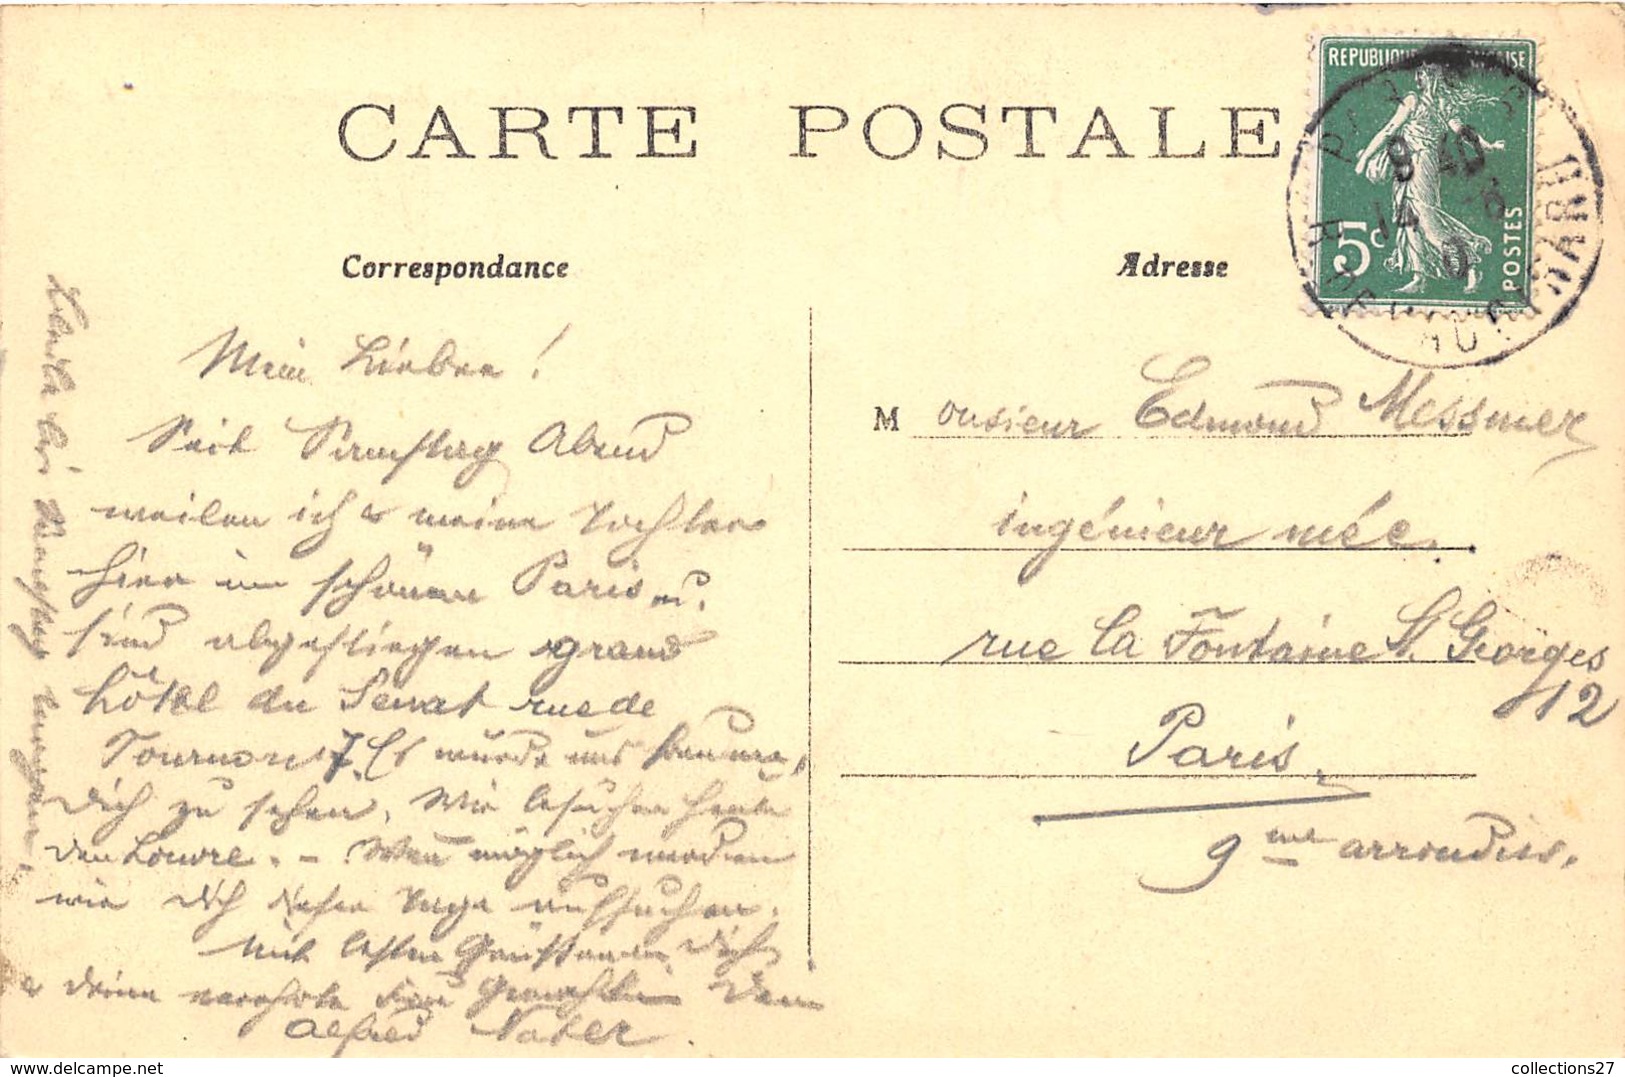 CARTE POSTALE
REPUBLIQUE FRANÇAISE
5c
POSTES
9 40
14
Correspondance
Adresse
Mein Lieber!
Seit Samstag Abend
weilen ich & meine Tochter
hier im schönen Paris u.
sind abgestiegen grand
hôtel du Senat rue de
Tournon 7. Es würde uns freuen,
Dich zu sehen. Wir besuchen heute
den Louvre. – Wenn möglich werden
wir Dich dieser Tage aufsuchen.
Mit besten Grüssen an Dich
& deine verehrte Frau Gemahlin Dein
Alfred Nater
Monsieur Edmond Messmer
ingénieur méc.
rue la Fontaine St. Georges
12
Paris
9me arrondiss.
collections27